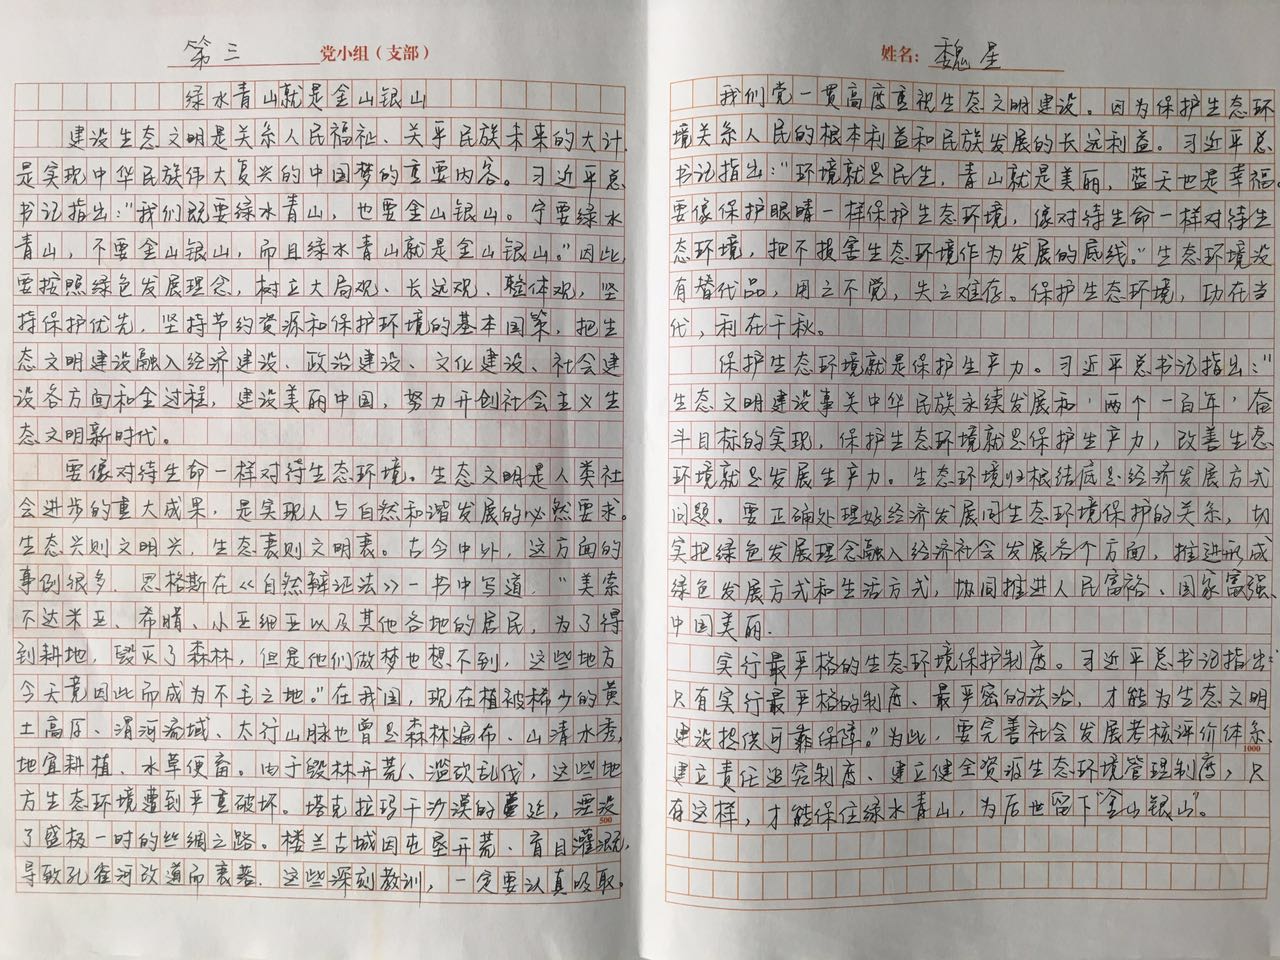 第三 党小组（支部）
绿水青山就是金山银山
建设生态文明是关系人民福祉、关乎民族未来的大计，
是实现中华民族伟大复兴的中国梦的重要内容。习近平总
书记指出："我们既要绿水青山，也要金山银山。宁要绿水
青山，不要金山银山，而且绿水青山就是金山银山。"因此，
要按照绿色发展理念，树立大局观、长远观、整体观，坚
持保护优先，坚持节约资源和保护环境的基本国策，把生
态文明建设融入经济建设、政治建设、文化建设、社会建
设各方面和全过程，建设美丽中国，努力开创社会主义生
态文明新时代。
要像对待生命一样对待生态环境。生态文明是人类社
会进步的重大成果，是实现人与自然和谐发展的必然要求。
生态兴则文明兴，生态衰则文明衰。古今中外，这方面的
事例很多．恩格斯在《自然辩证法》一书中写道 "美索
不达米亚、希腊、小亚细亚以及其他各地的居民，为了得
到耕地，毁灭了森林，但是他们做梦也想不到，这些地方
今天竟因此而成为不毛之地。"在我国，现在植被稀少的黄
土高原、渭河流域、太行山脉也曾是森林遍布、山清水秀，
地宜耕植、水草便畜。由于毁林开荒、滥砍乱伐，这些地
方生态环境遭到严重破坏。塔克拉玛干沙漠的蔓延，湮没
500
了盛极一时的丝绸之路。楼兰古城因屯垦开荒、盲目灌溉，
导致孔雀河改道而衰落．这些深刻教训，一定要认真吸取。
姓名：魏星
我们党一贯高度重视生态文明建设。因为保护生态环
境关系人民的根本利益和民族发展的长远利益。习近平总
书记指出："环境就是民生，青山就是美丽，蓝天也是幸福。
要像保护眼睛一样保护生态环境，像对待生命一样对待生
态环境，把不损害生态环境作为发展的底线。"生态环境没
有替代品，用之不觉，失之难存。保护生态环境，功在当
代，利在千秋。
保护生态环境就是保护生产力。习近平总书记指出："
生态文明建设事关中华民族永续发展和'两个一百年'奋
斗目标的实现，保护生态环境就是保护生产力，改善生态
环境就是发展生产力。生态环境归根结底是经济发展方式
问题。要正确处理好经济发展同生态环境保护的关系，切
实把绿色发展理念融入经济社会发展各个方面，推进形成
绿色发展方式和生活方式，协同推进人民富裕、国家富强、
中国美丽．
实行最严格的生态环境保护制度。习近平总书记指出：
只有实行最严格的制度、最严密的法治，才能为生态文明
建设提供可靠保障。"为此，要完善社会发展考核评价体系、
1000
建立责任追究制度、建立健全资源生态环境管理制度，只
有这样，才能保住绿水青山，为后世留下"金山银山"。